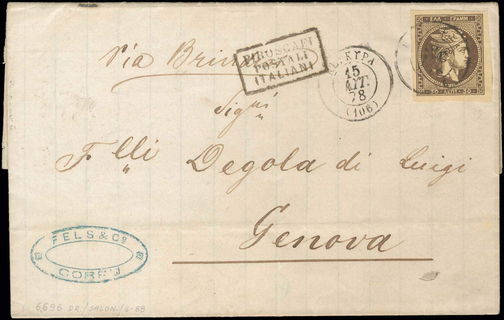 via Brin
PIROSCAFI
POSTALI
ITALIANI
ΚΕΡΚΥΡΑ
15
ΑΥΓ.
78
(106)
ΕΛΛ. ΓΡΑΜΜ.
30 ΛΕΠΤ. 30
Sigri
F.lli Degola di Luigi
Genova
FELS & Co
CORFU
6,696 DR/SALON/6-88